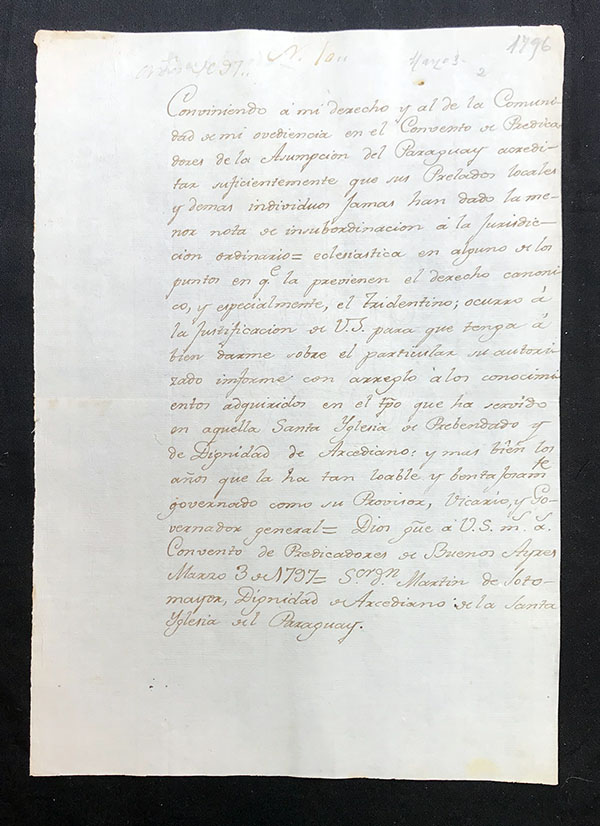 1796
N. 10,,
Marzo 3.
2
Conviniendo á mi derecho y al de la Comuni-
dad de mi ovediencia en el Convento de Predica-
dores de la Asumpcion del Paraguay acredi-
tar suficientemente que sus Prelados locales
y demas individuos Jamas han dado la me-
nor nota de insubordinacion á la Jurisdic-
cion ordinario= eclesiastica en alguno de los
puntos en q.e la previenen el derecho canoni-
co, y especialmente, el Tridentino; ocurro á
la Justificacion de U.S. para que tenga á
bien darme sobre el particular su autori-
zado imforme con arreglo álos conocimi-
entos adquiridos en el tpo que ha servido
en aquella Santa Yglesia de Prebendado y
de Dignidad de Arcediano: y mas bien los
años que la ha tan loable y bentajosam.te
governado como su Provisor, Vicario, y Go-
vernador general= Dios gũe á U.S. m.s a.s
Convento de Predicadores de Buenos Ayres
Marzo 3 de 1797= S.or d.n Martin de Soto-
mayor, Dignidad de Arcediano de la Santa
Yglesia del Paraguay.